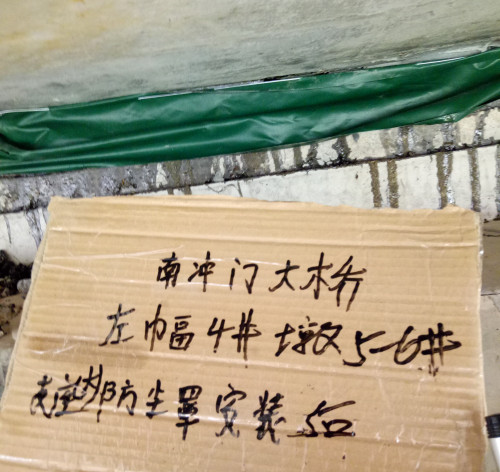 南冲门大桥
左巾幅4#墩 5-6#
支座防尘罩安装 50